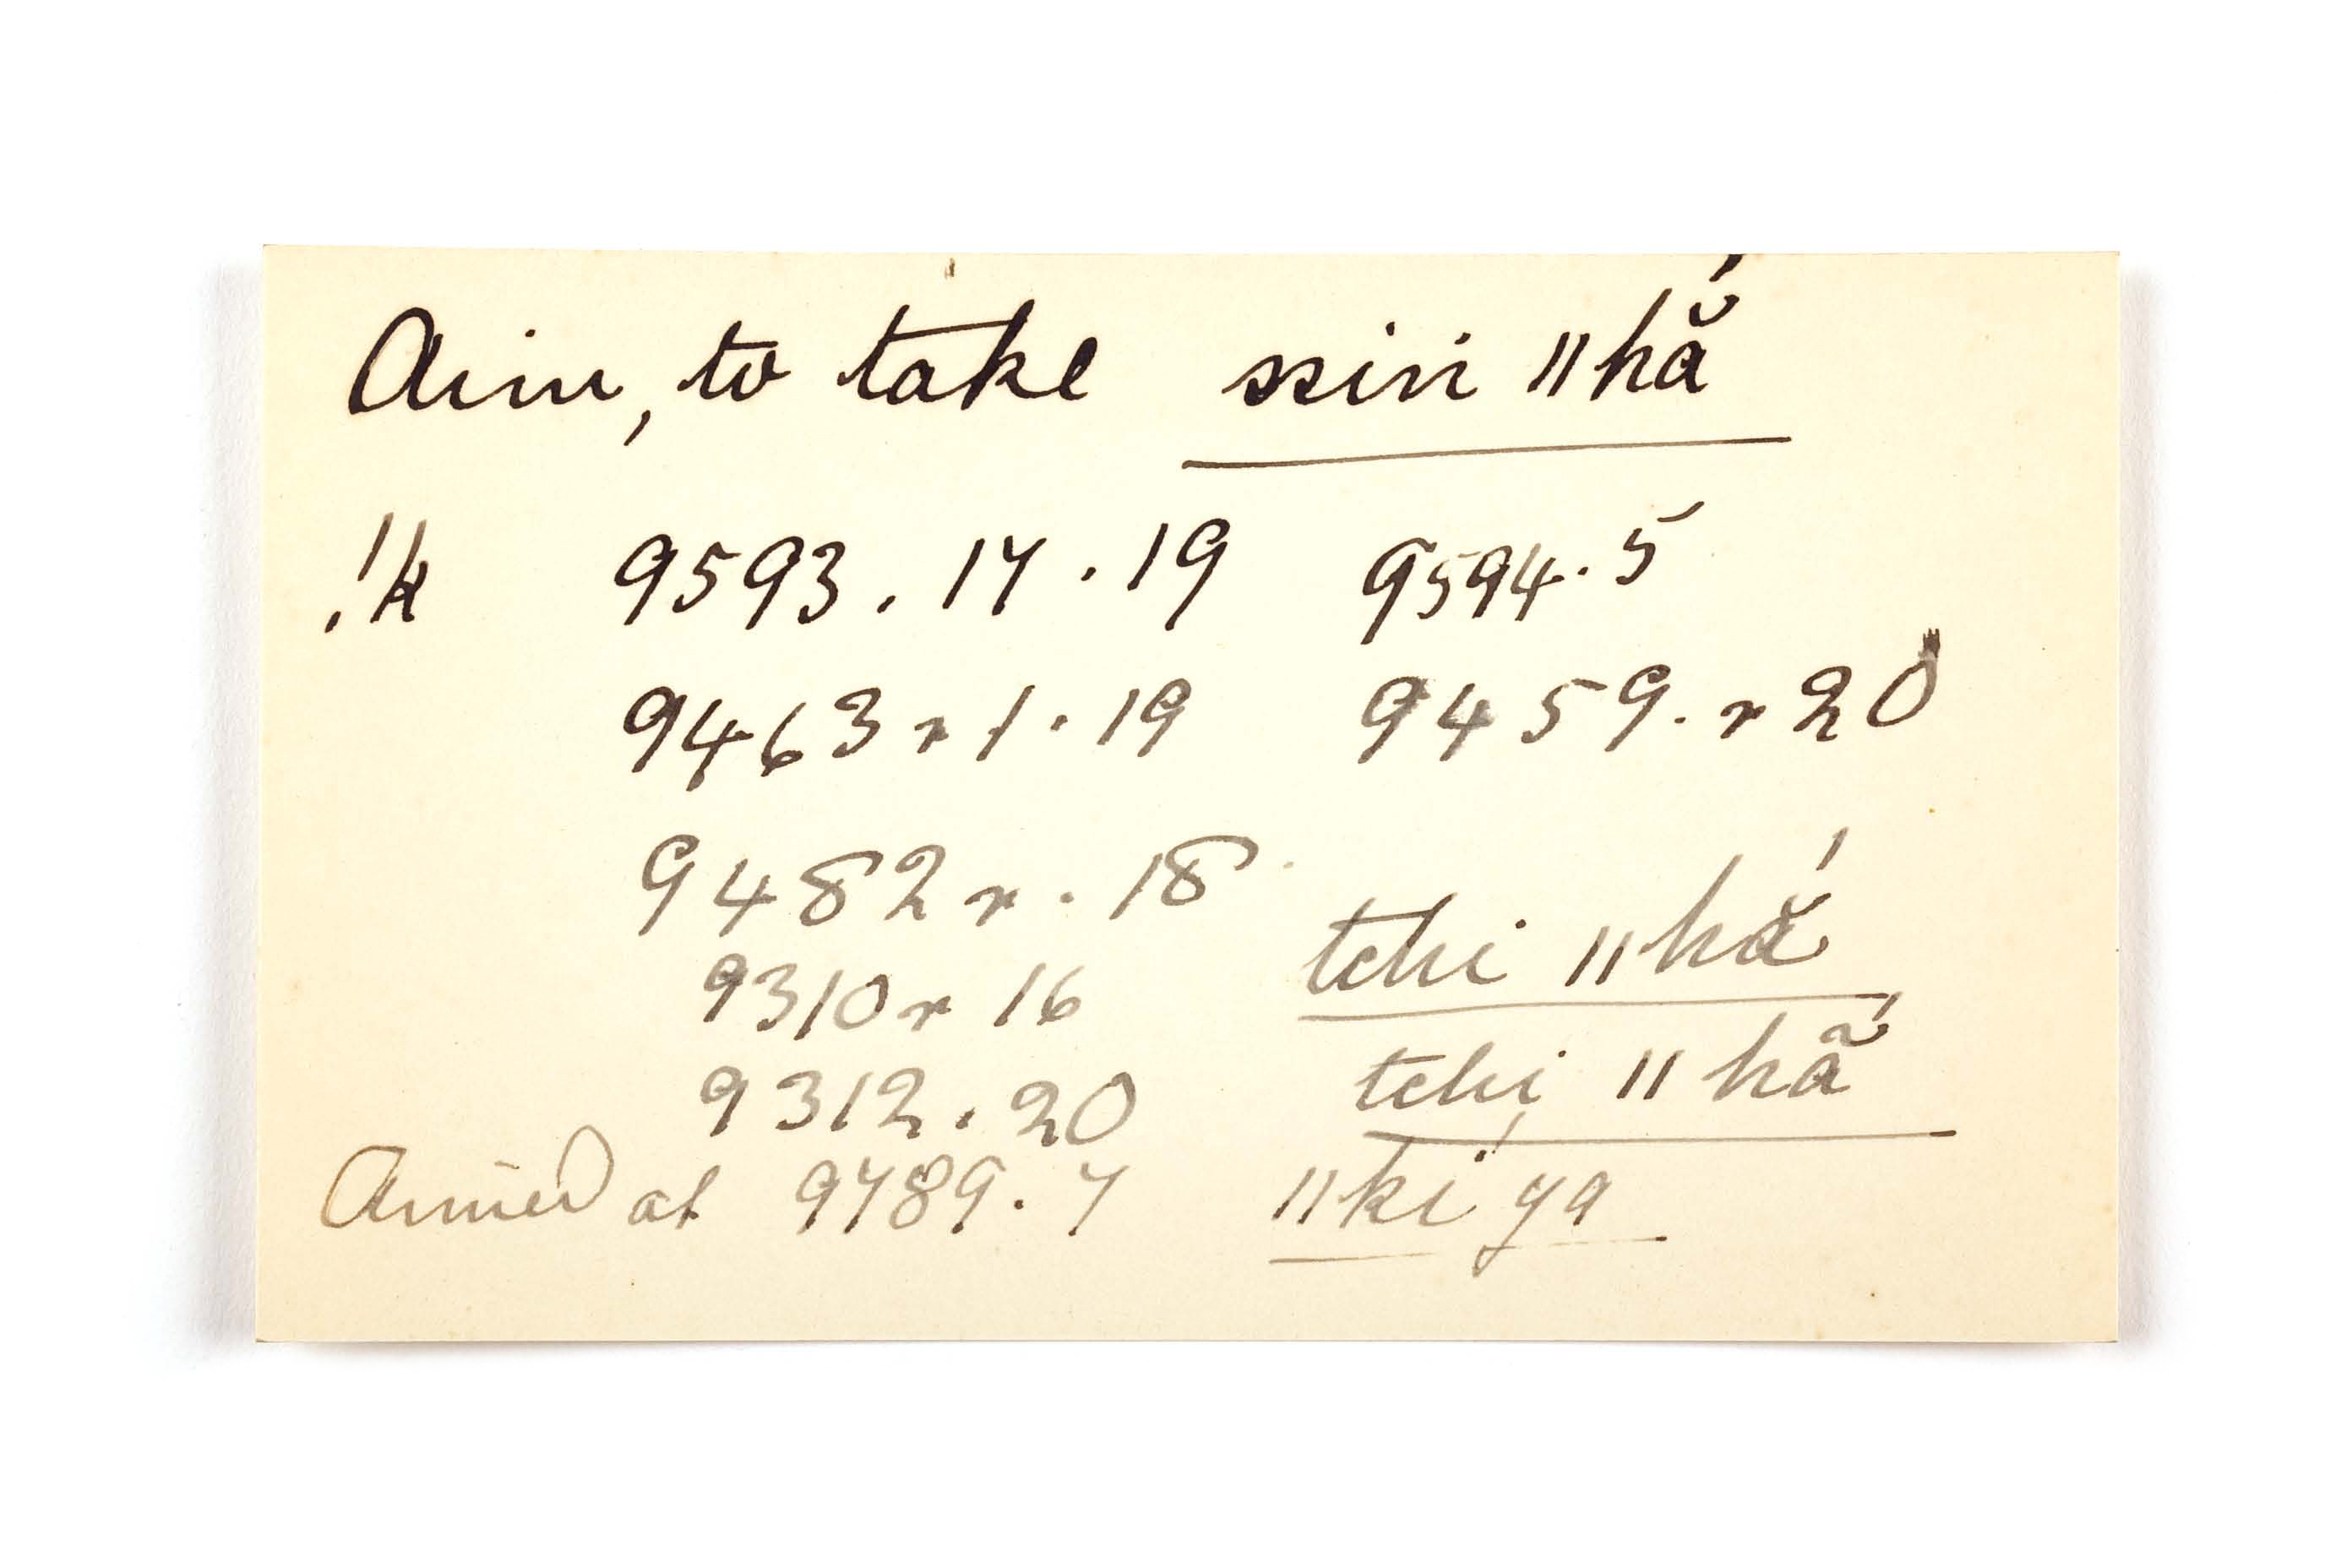 Aim, to take ssiṅ ǁhắ
!k 9593 . 17 . 19 9594 . 5
9463 r 1 . 19 9459 . r 20
9482 r . 18
tchi ǁhắ
9310 r 16
9312 . 20 tchi ǁhã́
Aimed at 9789 . 7 ǁkí ya